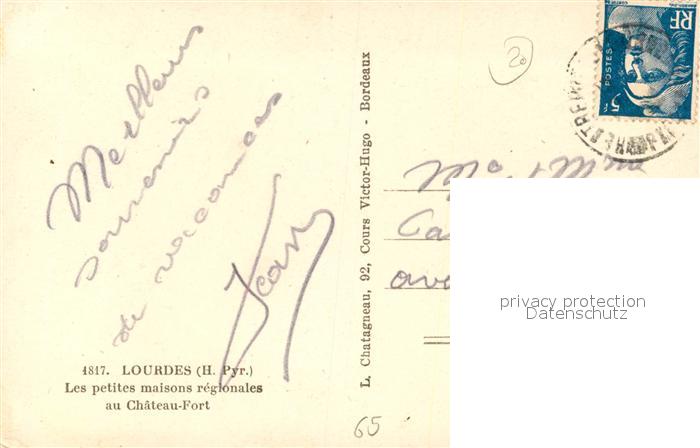 Meilleurs
souvenirs
de vacances
Jean
1817. LOURDES (H. Pyr.)
Les petites maisons régionales
au Château-Fort
L. Chatagneau, 92, Cours Victor-Hugo - Bordeaux
20
RF
POSTES
5
65
privacy protection
Datenschutz